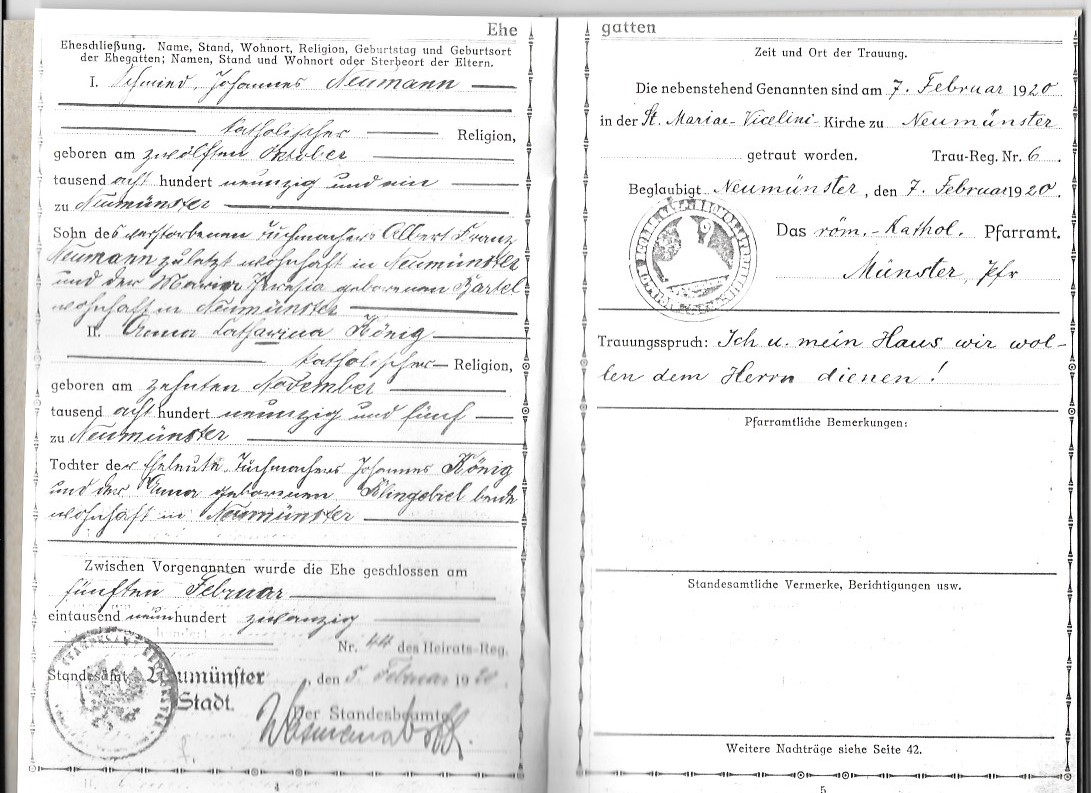 Ehe
Eheschließung. Name, Stand, Wohnort, Religion, Geburtstag und Geburtsort
der Ehegatten; Namen, Stand und Wohnort oder Sterbeort der Eltern.
I. Schmied, Johannes Neumann
katholischer Religion,
geboren am zwölften Oktober
tausend acht hundert neunzig und ein
zu Neumünster
Sohn des verstorbenen Tuchmachers Albert Franz
Neumann zuletzt wohnhaft in Neumünster
und der Maria Theresia geborenen Bartel
wohnhaft in Neumünster
II. Anna Catharina König
katholischer Religion,
geboren am zehnten November
tausend acht hundert neunzig und fünf
zu Neumünster
Tochter der Eheleute Tuchmachers Johannes König
und der Anna geborenen Klingebiel beide
wohnhaft in Neumünster
Zwischen Vorgenannten wurde die Ehe geschlossen am
fünften Februar
eintausend neunhundert zwanzig
Nr. 44 des Heirats-Reg.
Standesamt Neumünster, den 5. Februar 1920.
Stadt.
Der Standesbeamte
4
gatten
Zeit und Ort der Trauung.
Die nebenstehend Genannten sind am 7. Februar 1920
in der St. Mariae-Vicelini-Kirche zu Neumünster
getraut worden. Trau-Reg. Nr. 6.
Beglaubigt Neumünster, den 7. Februar 1920.
Das röm.-kathol. Pfarramt.
Münster, Pfr
Trauungsspruch: Ich u. mein Haus wir wol-
len dem Herrn dienen!
Pfarramtliche Bemerkungen:
Standesamtliche Vermerke, Berichtigungen usw.
Weitere Nachträge siehe Seite 42.
5